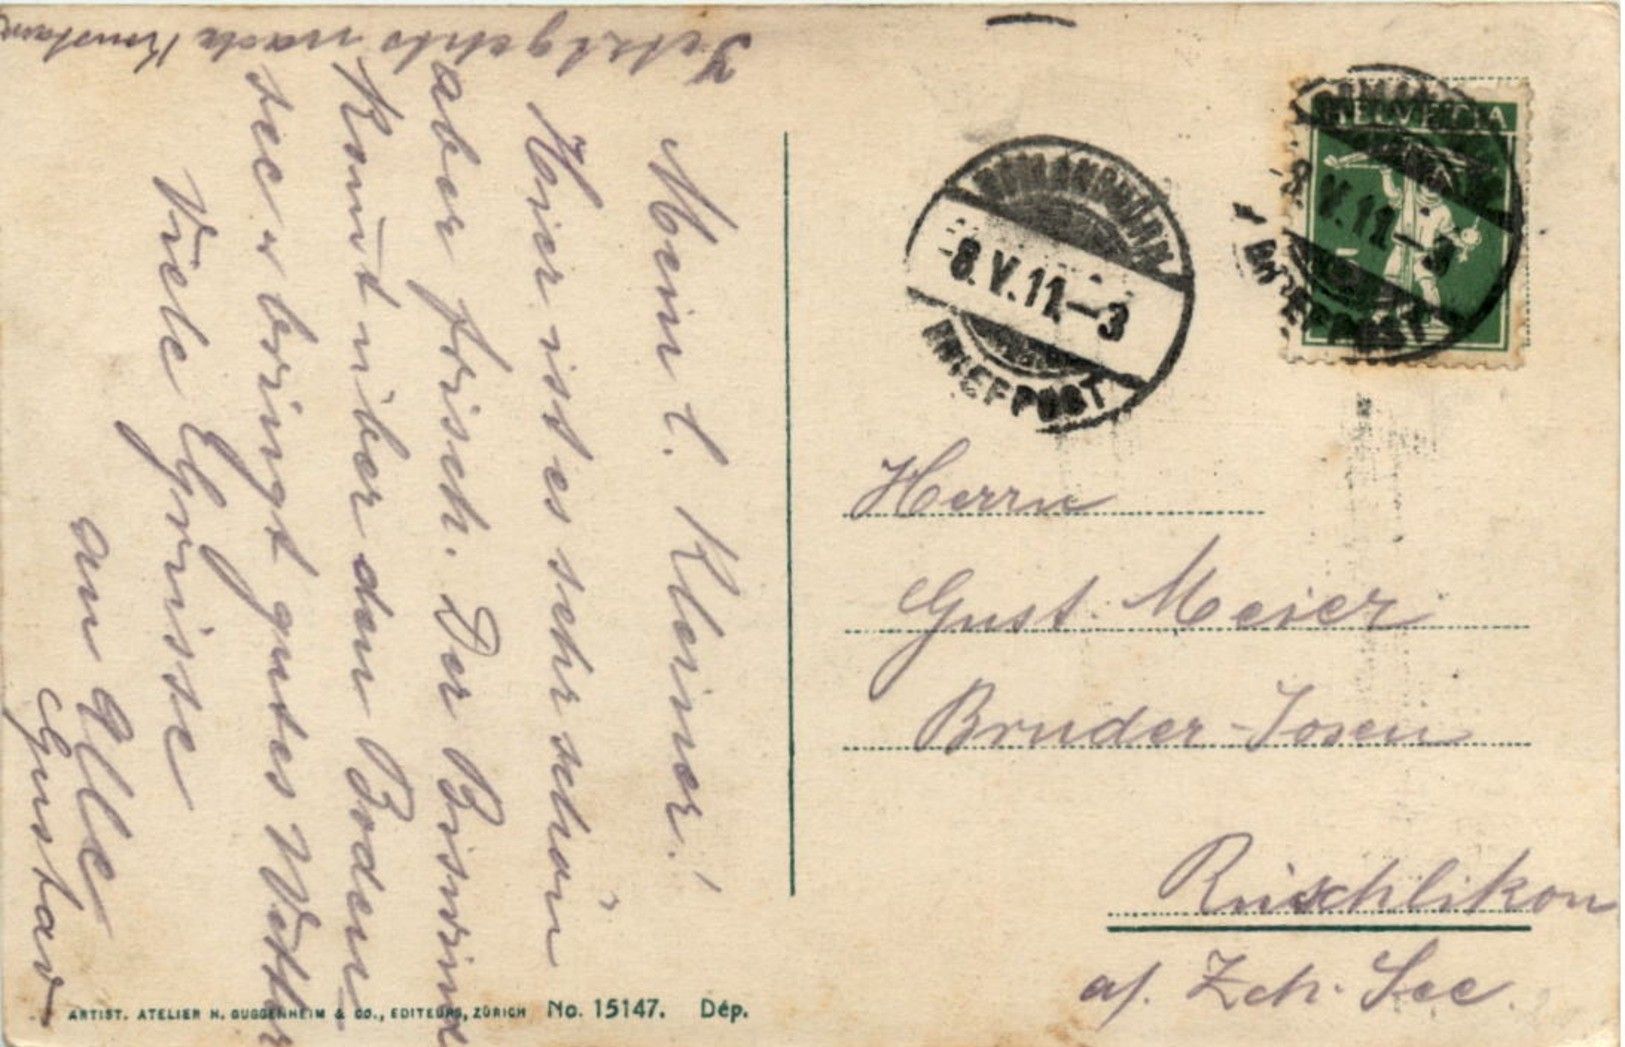 Mein l. Kleiner!
Hier ist es sehr schön
aber frisch. Der Biswind
kom̄t über den Boden
see & bringt gutes Wetter
Viele Grüsse
an Alle
Gustav
Jetzt gehts nach Konstanz
HELVETIA
8.V.11-3
BRIEFPOST
ROMANSHORN
8.V.11-3
BRIEFPOST
Herrn
Gust. Meier
Bruder-Josen
Rüschlikon
a/. Zch. See.
ARTIST. ATELIER H. GUGGENHEIM & CO., EDITEURS, ZÜRICH No. 15147. Dép.